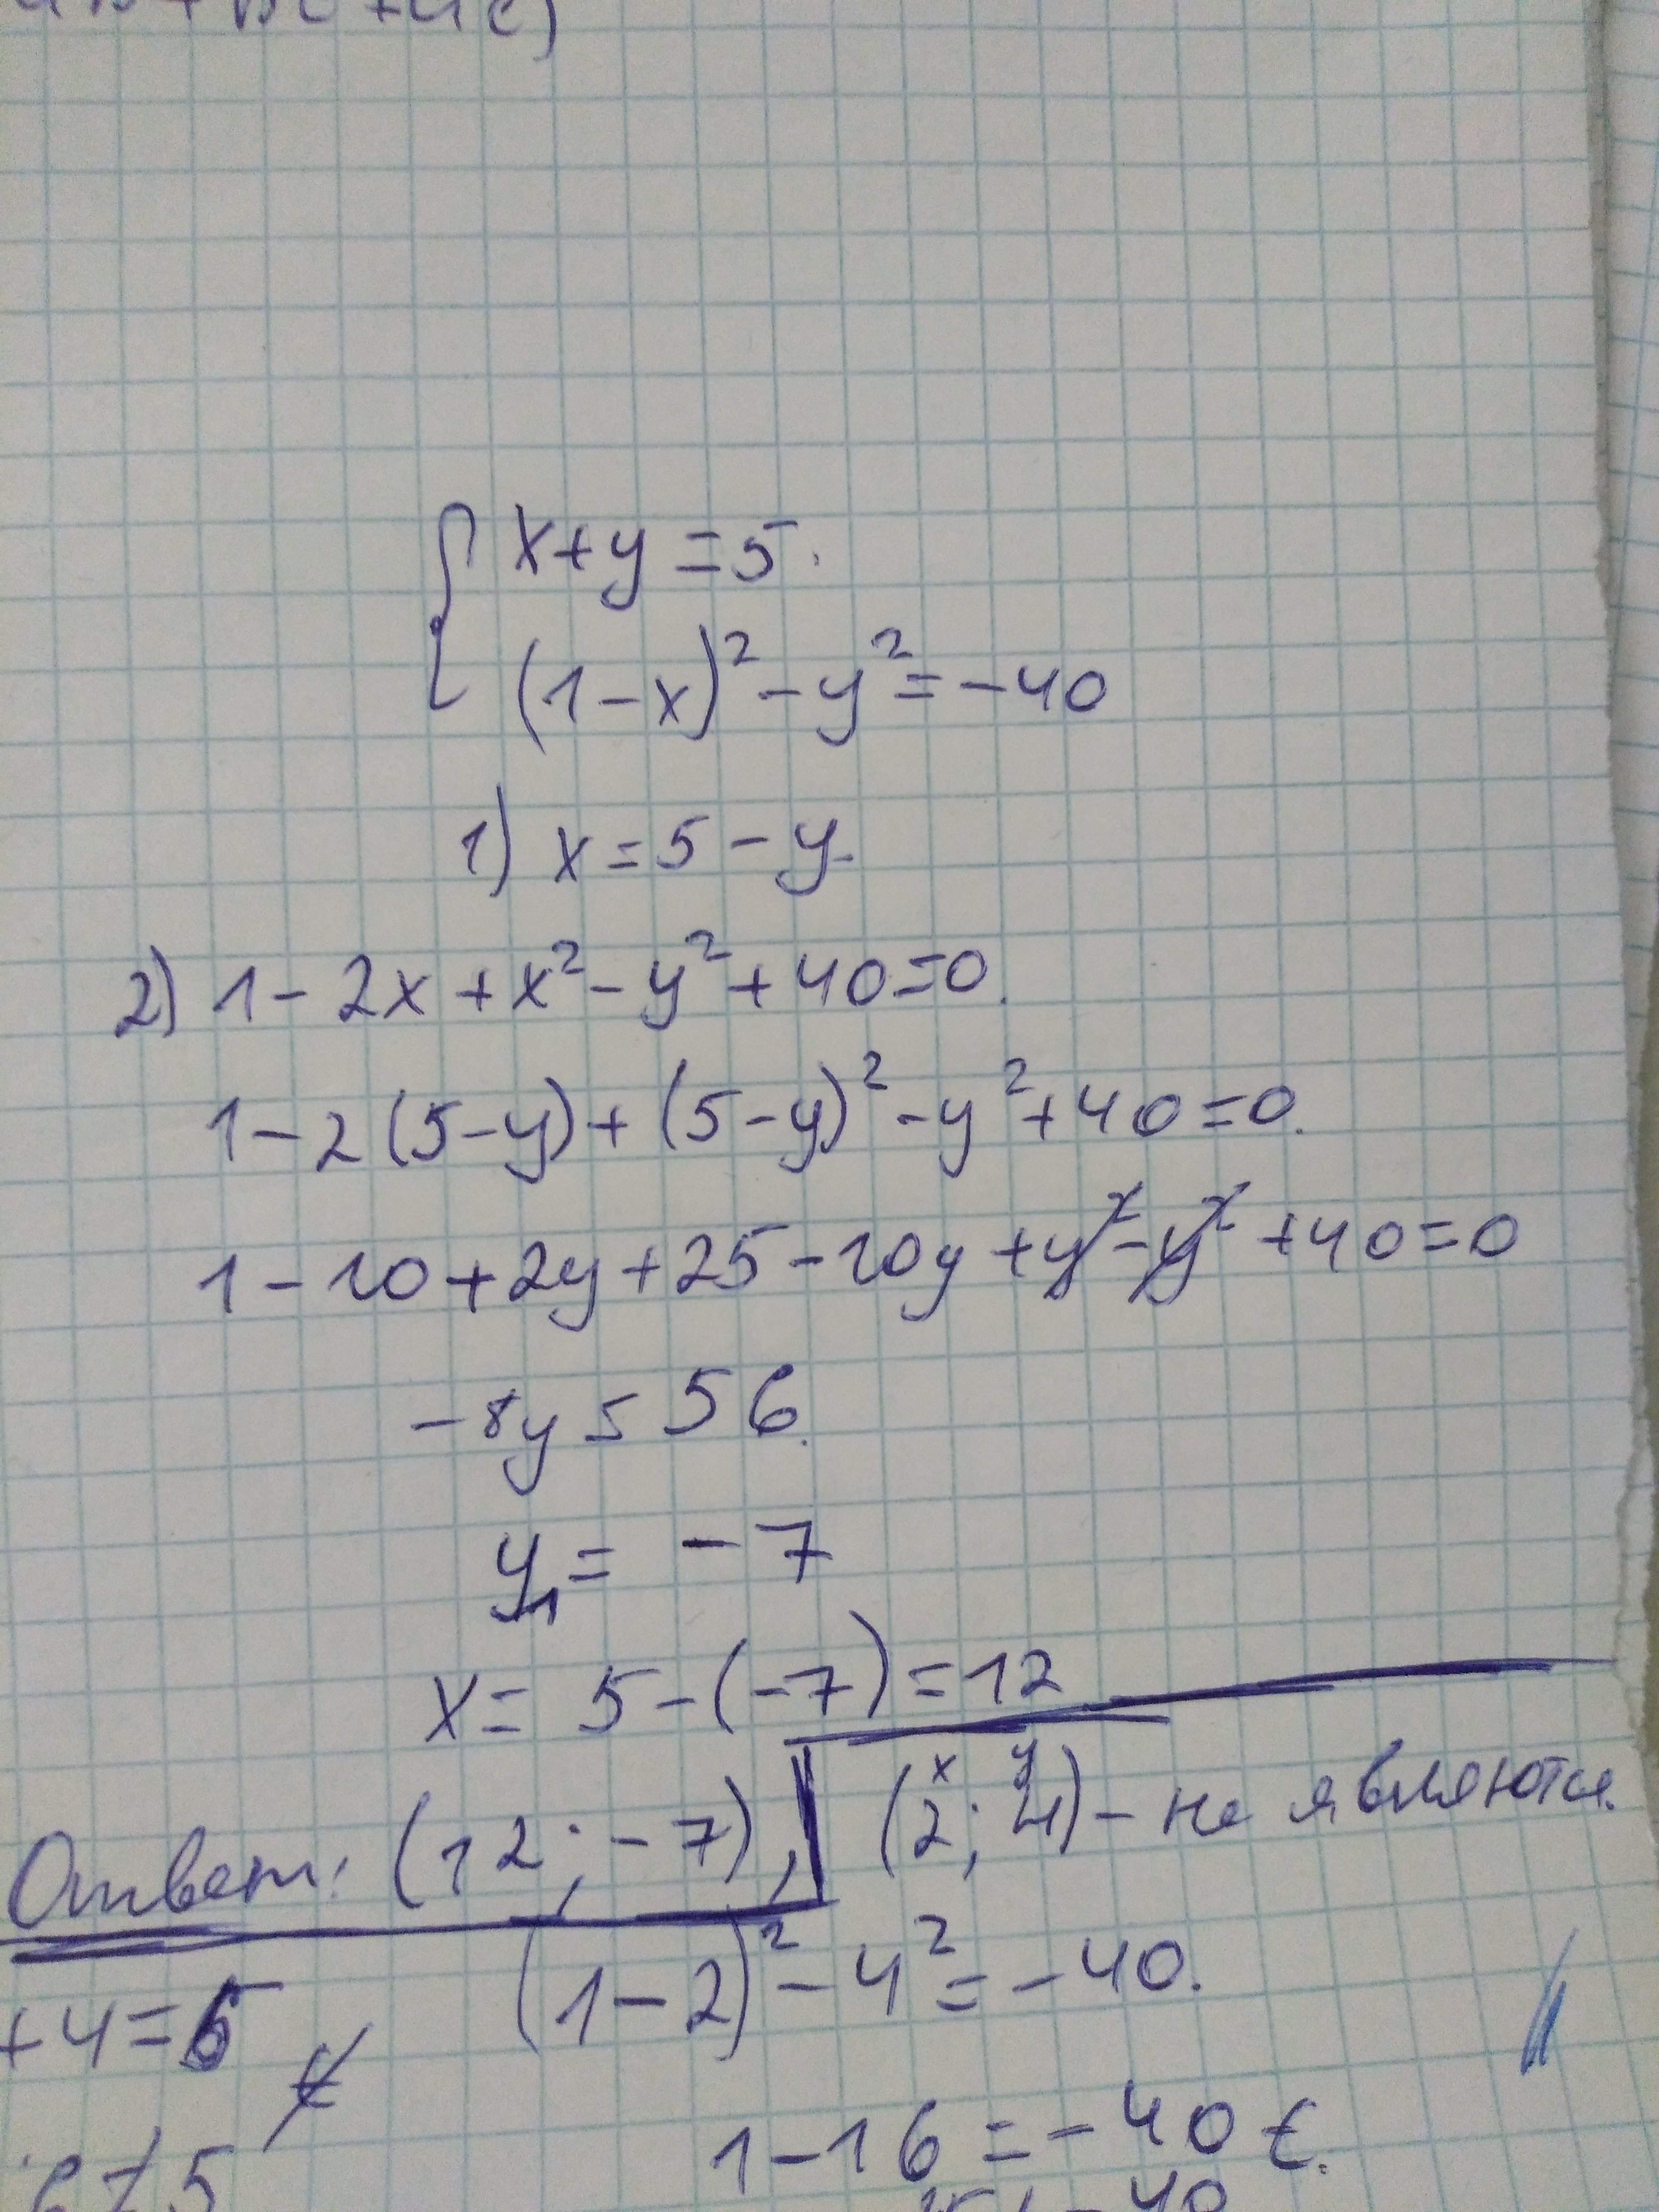 x+y=5.
(1-x)²-y²=-40
1) x=5-y
2) 1-2x+x²-y²+40=0.
1-2(5-y)+(5-y)²-y²+40=0.
1-10+2y+25-10y+y²-y²+40=0
-8y=56.
y₁=-7
x=5-(-7)=12
x y
Ответ: (12;-7), (2;4)-не являются.
+4=6 (1-2)²-4²=-40.
6≠5 1-16=-40